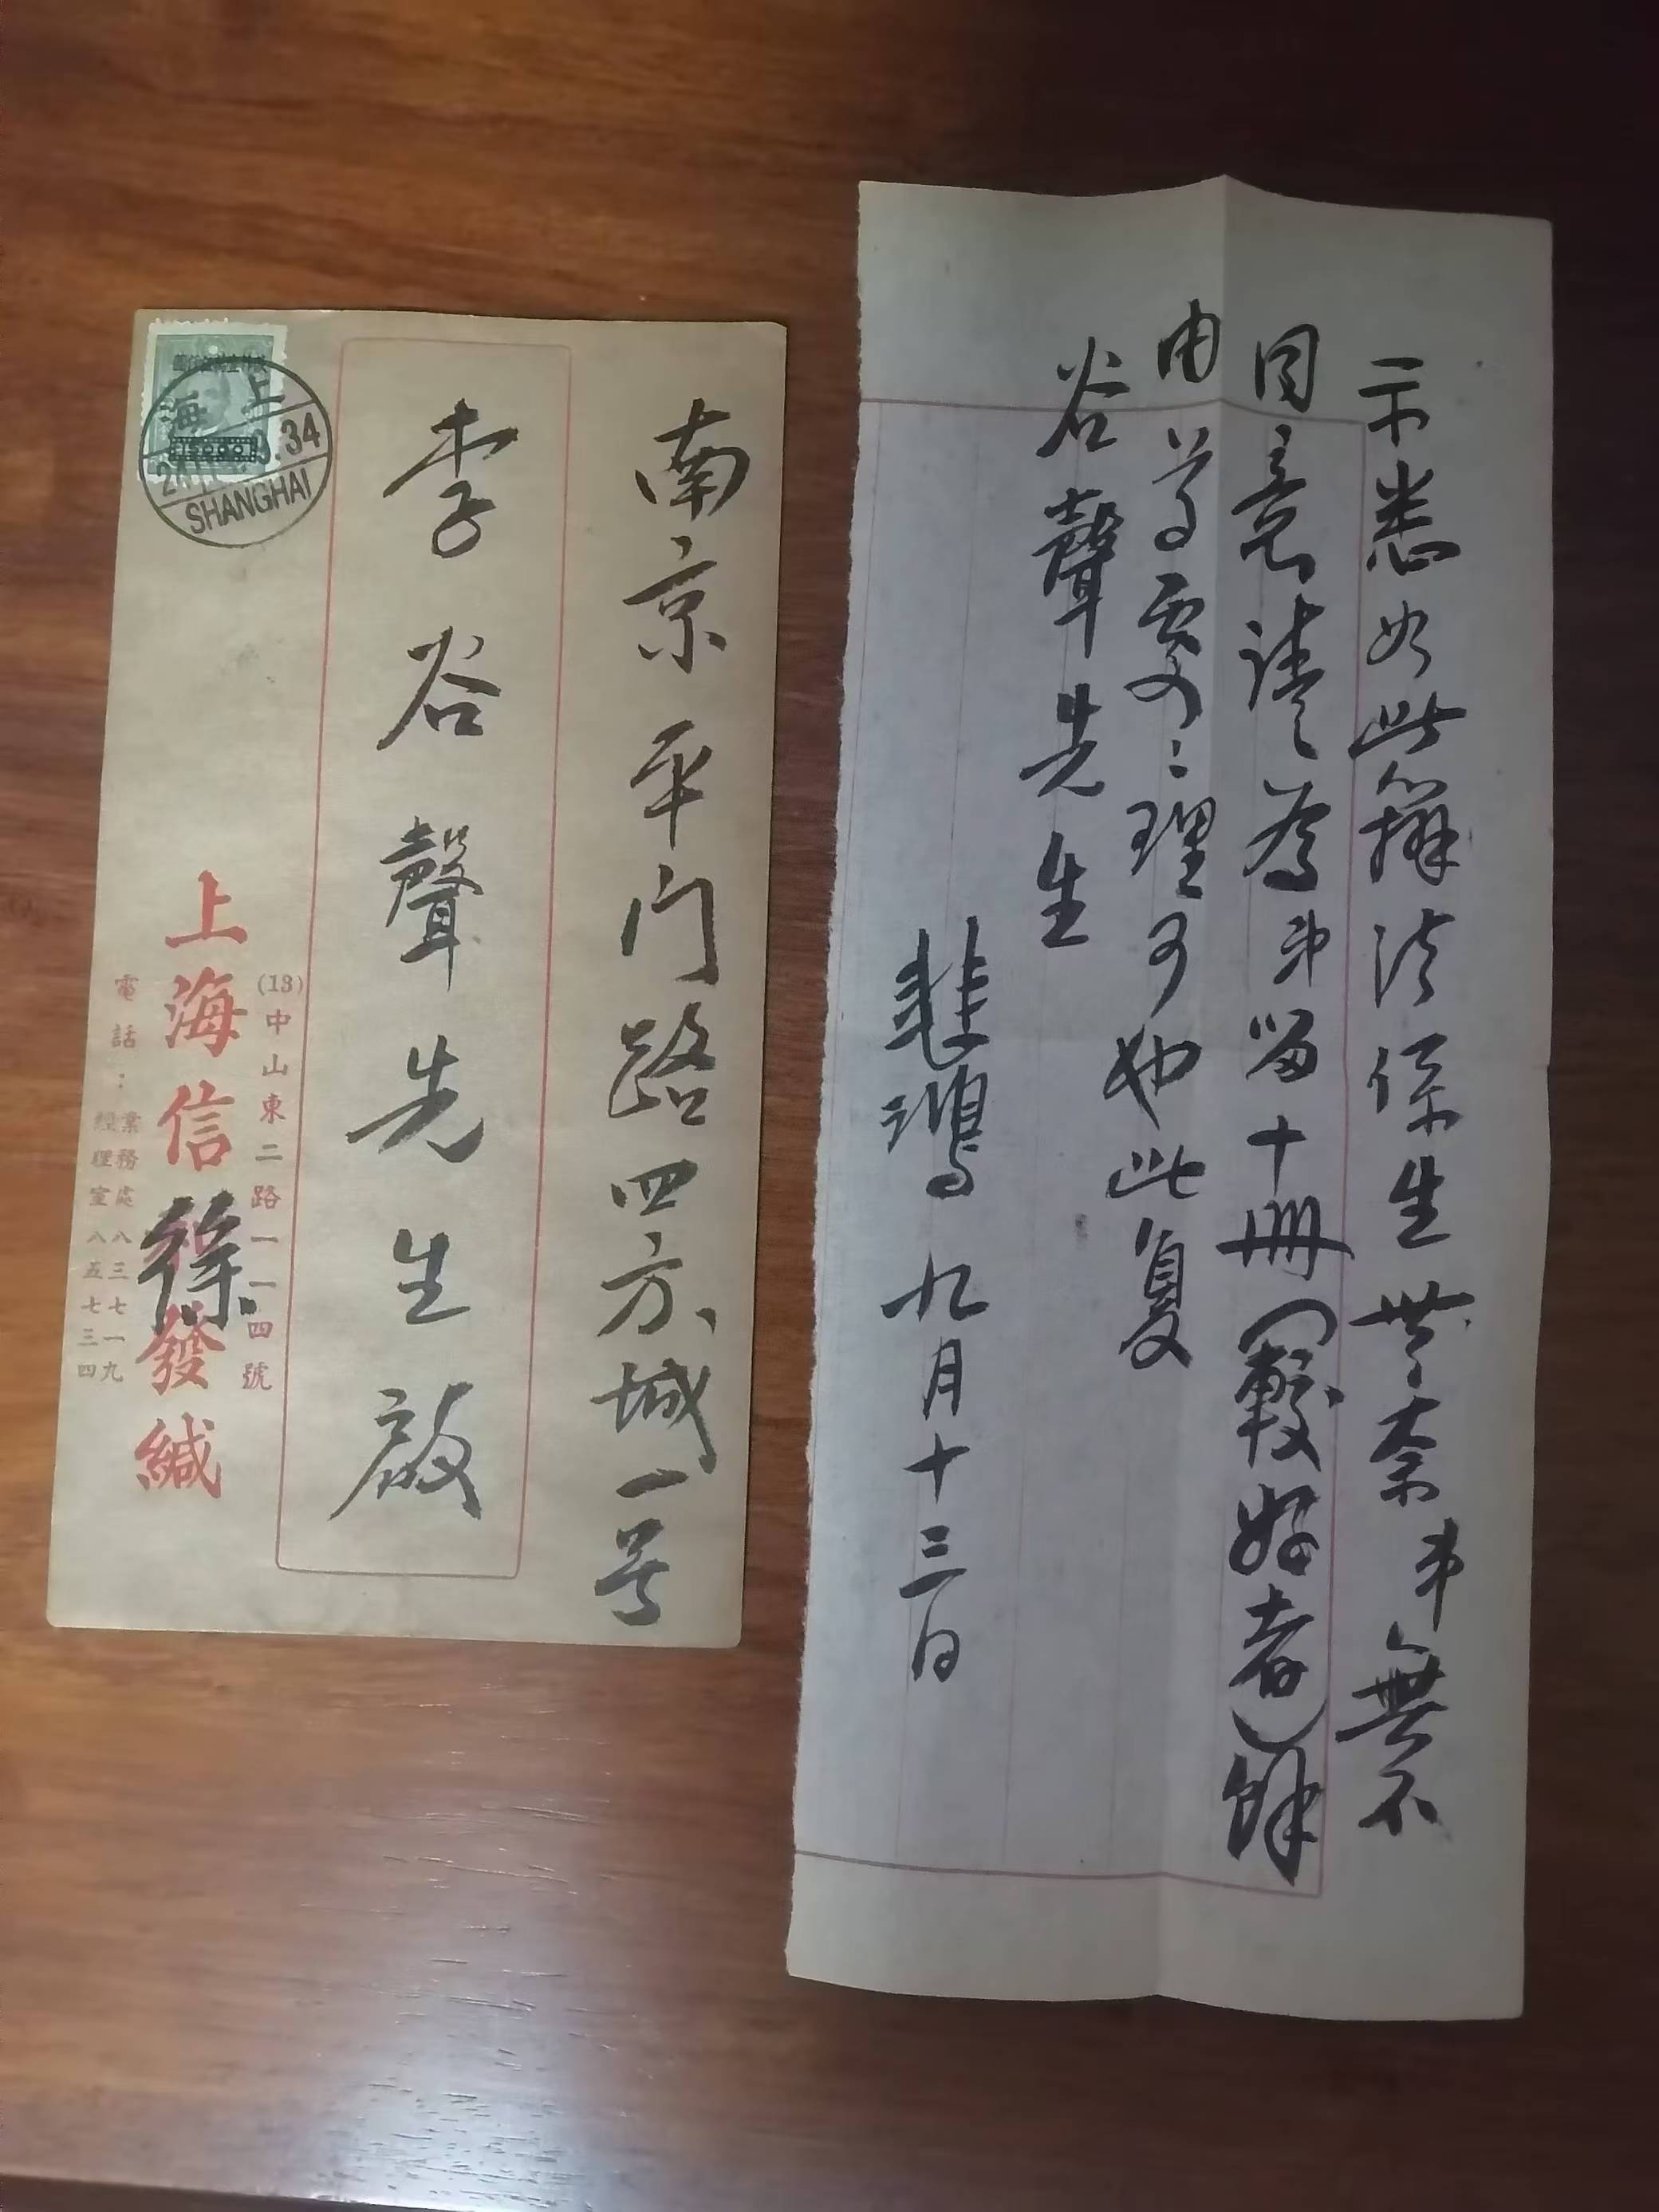 示悉如此辦法係生無奈弟無不
同意請為弟留十冊(較好者)餘
由尊處處理可也此复
谷聲先生
悲鴻 九月十三日
南京平门路四方城一号
李谷聲先生啟
上海
34
SHANGHAI
(13)中山東二路一一四號
上海信 發緘
徐
電話：業務處八三七一九
經理室八五七三四